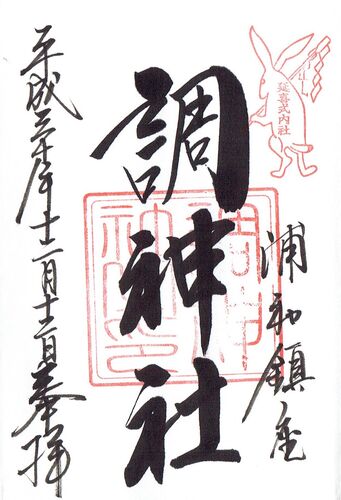 延喜式内社
浦和鎮座
調神社
平成三十年十二月十二日奉拝